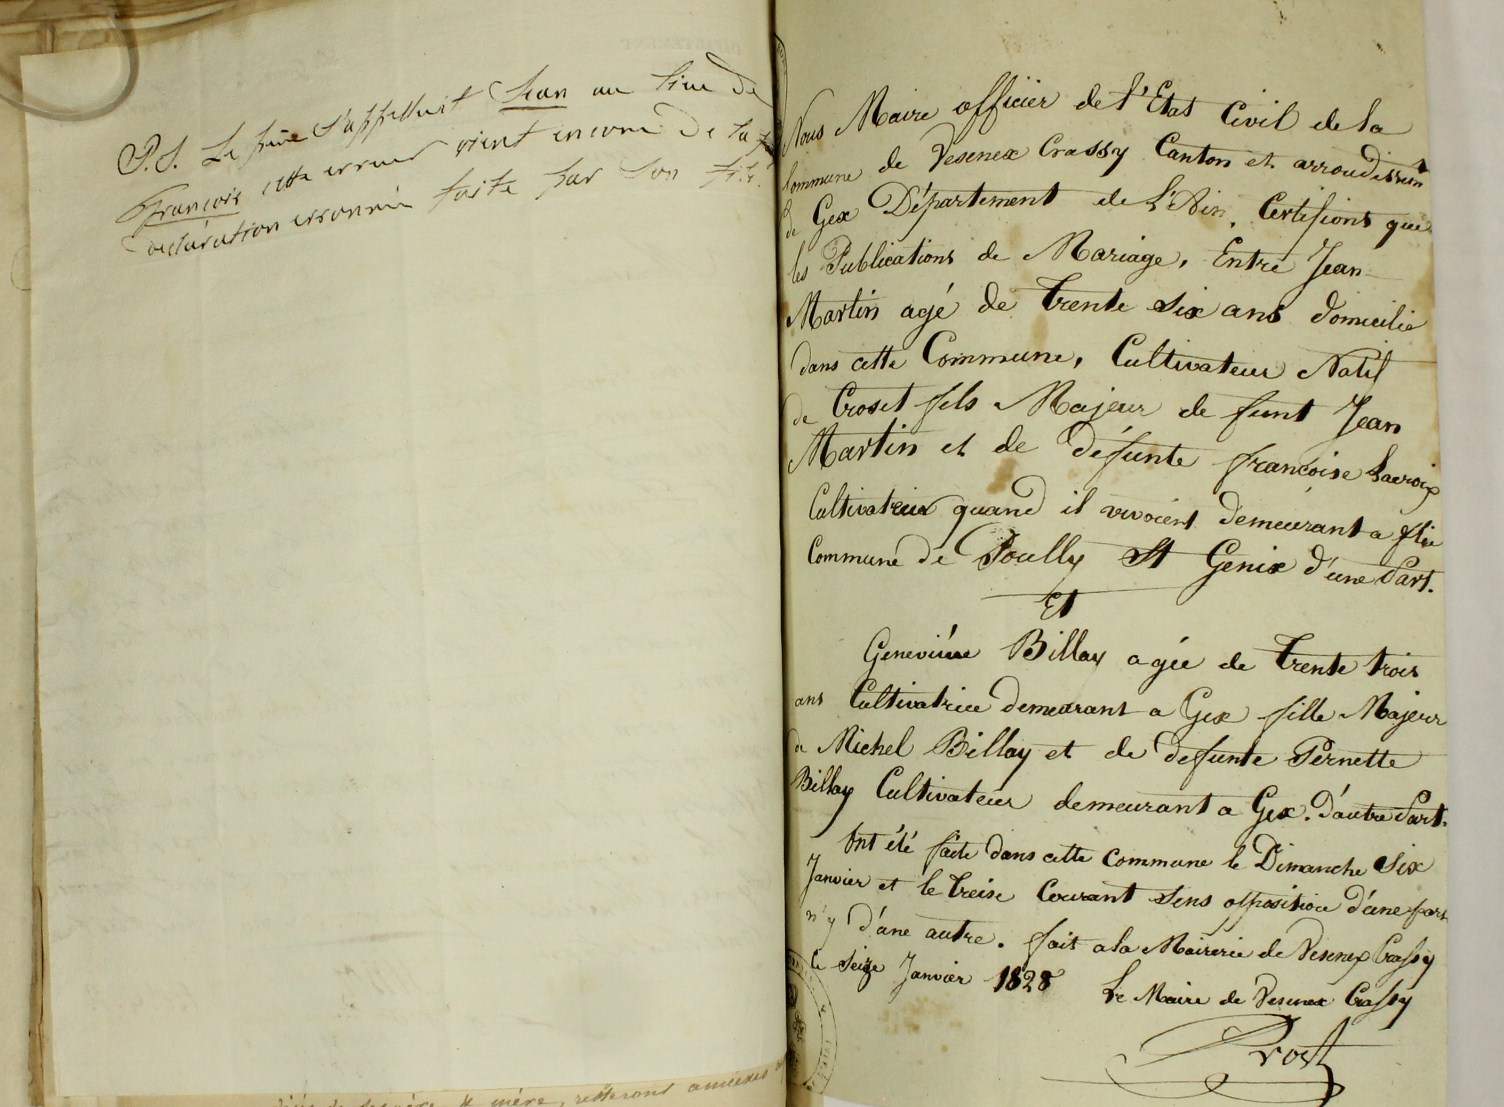 P.S. Le père s'appelloit Jean au lieu de
François cette erreur vient encore de la
déclaration erronnée faite par son fils.
Nous Maire officiér de l'Etat Civil de la
Commune de Vesenex Crassy Canton et arroudissem
de Gex Département de l'Ain, Certifions que
les Publications de Mariage, Entre Jean
Martin agé de trente six ans domicilié
dans cette Commune, Cultivateur Natif
de Croset fils Majeur de funt Jean
Martin et de défunte francoise Lacroix
Cultivateur quand il vivoient demeurant a flie
Commune de Poully St Genix d'une Part.
Et
Geneviéve Billay agée de trente trois
ans Cultivatrice demeurant a Gex fille Majeur
de Michel Billay et de defunte Pernette
Billay Cultivateur demeurant a Gex. d'autre Part.
Ont été faite dans cette commune le Dimanche Six
Janvier et le treise Courant sens opposition d'une part
n'y d'une autre. fait a la Mairerie de Vesenex Crassy
le seize Janvier 1828 Le Maire de Vesenex Crassy
Prost
père & mère, resteront annexées